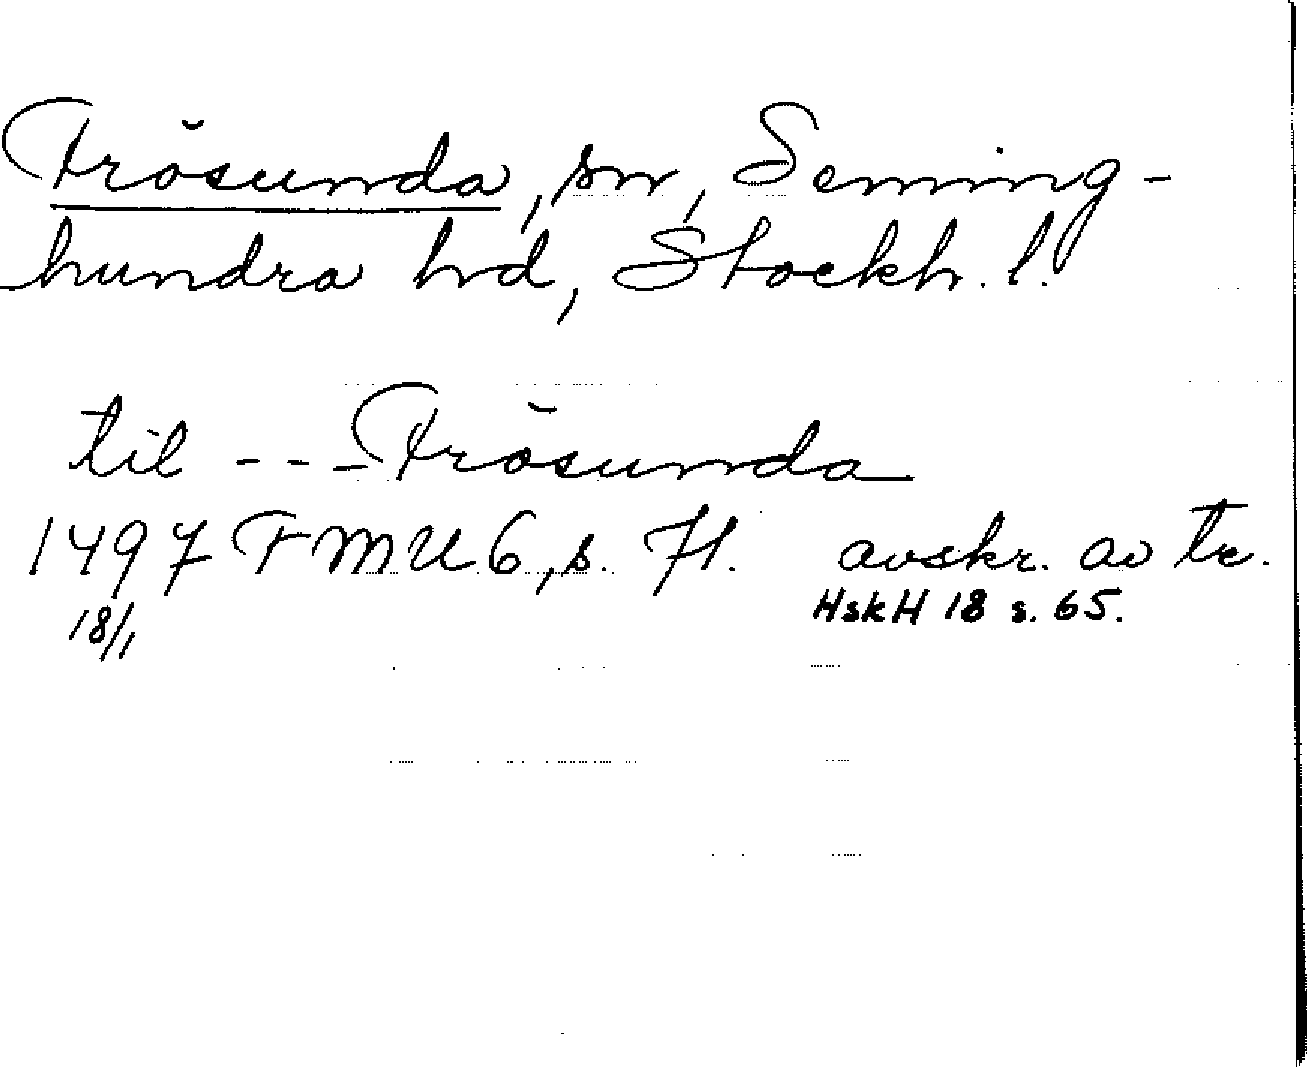 Frösunda, sn, Seming-
hundra hd, Stockh. l.
til --- Frösunda
1497 FMU 6, s. 71. avskr. av tr.
18/1 HskH 18 s. 65.